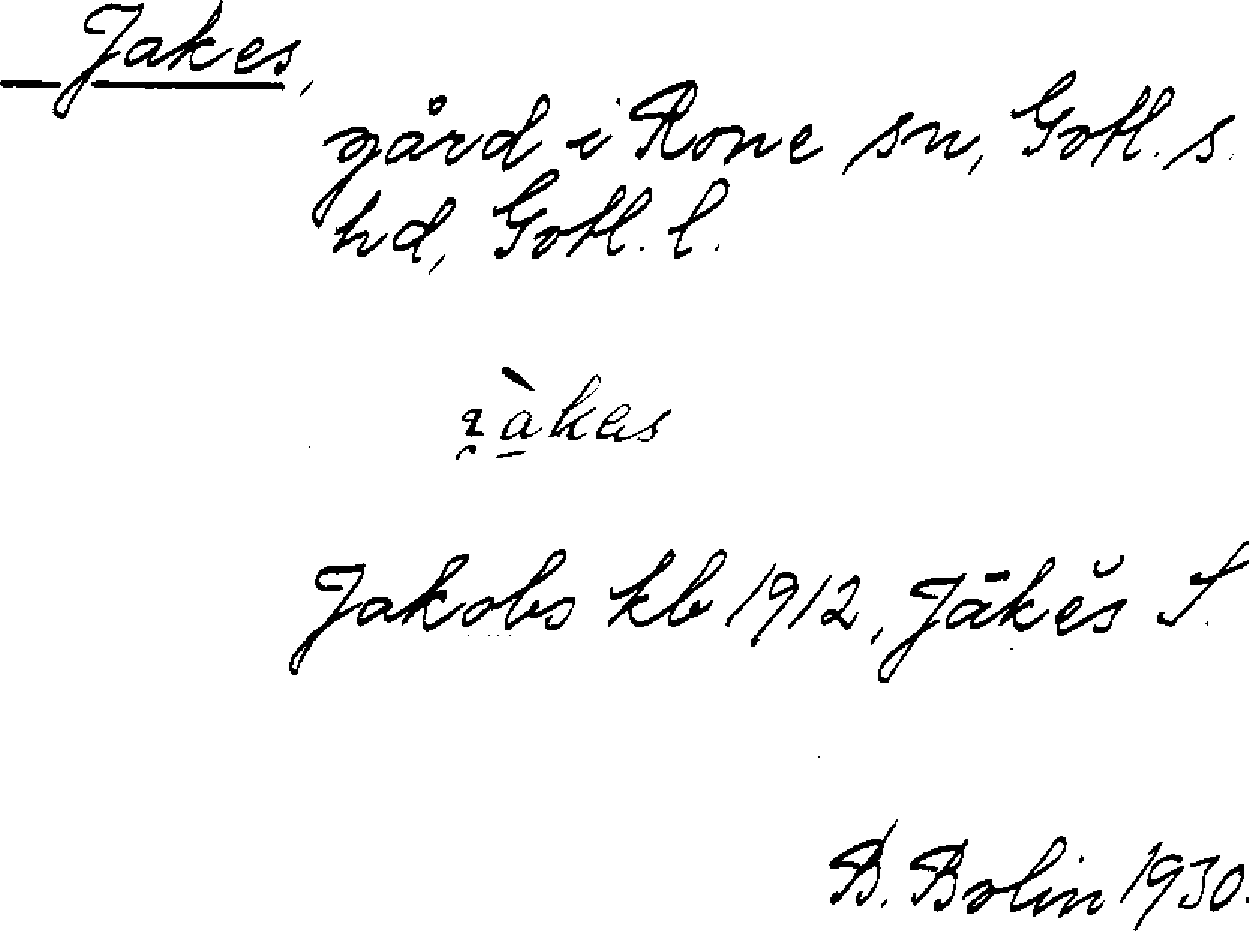 Jakes,
gård i Rone sn, Gotl. s.
hd, Gotl. l.
Jakobs kb 1912, Jākĕs S.
B. Bolin 1930.